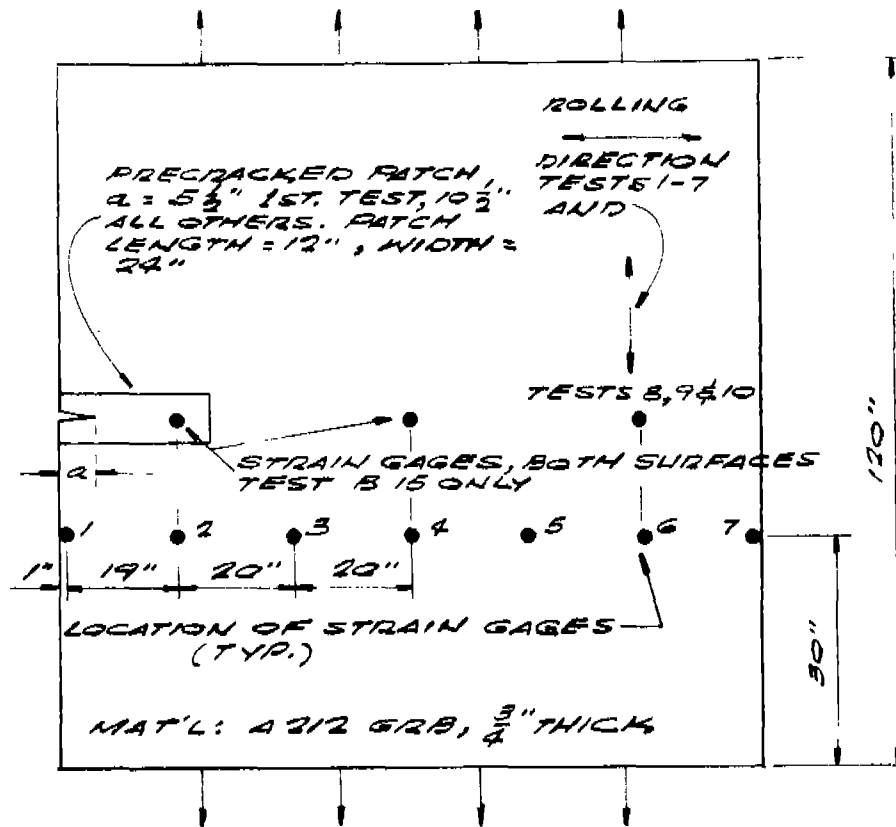 ROLLING
DIRECTION
TESTS 1-7
AND
PRECRACKED PATCH,
a = 5 1/2" 1ST. TEST, 10 1/2"
ALL OTHERS. PATCH
LENGTH = 12", WIDTH =
24"
TESTS 8, 9 & 10
STRAIN GAGES, BOTH SURFACES
TEST B 15 ONLY
a
120"
1 2 3 4 5 6 7
1" 19" 20" 20"
LOCATION OF STRAIN GAGES
(TYP.)
30"
MAT'L: A 212 GRB, 3/4" THICK